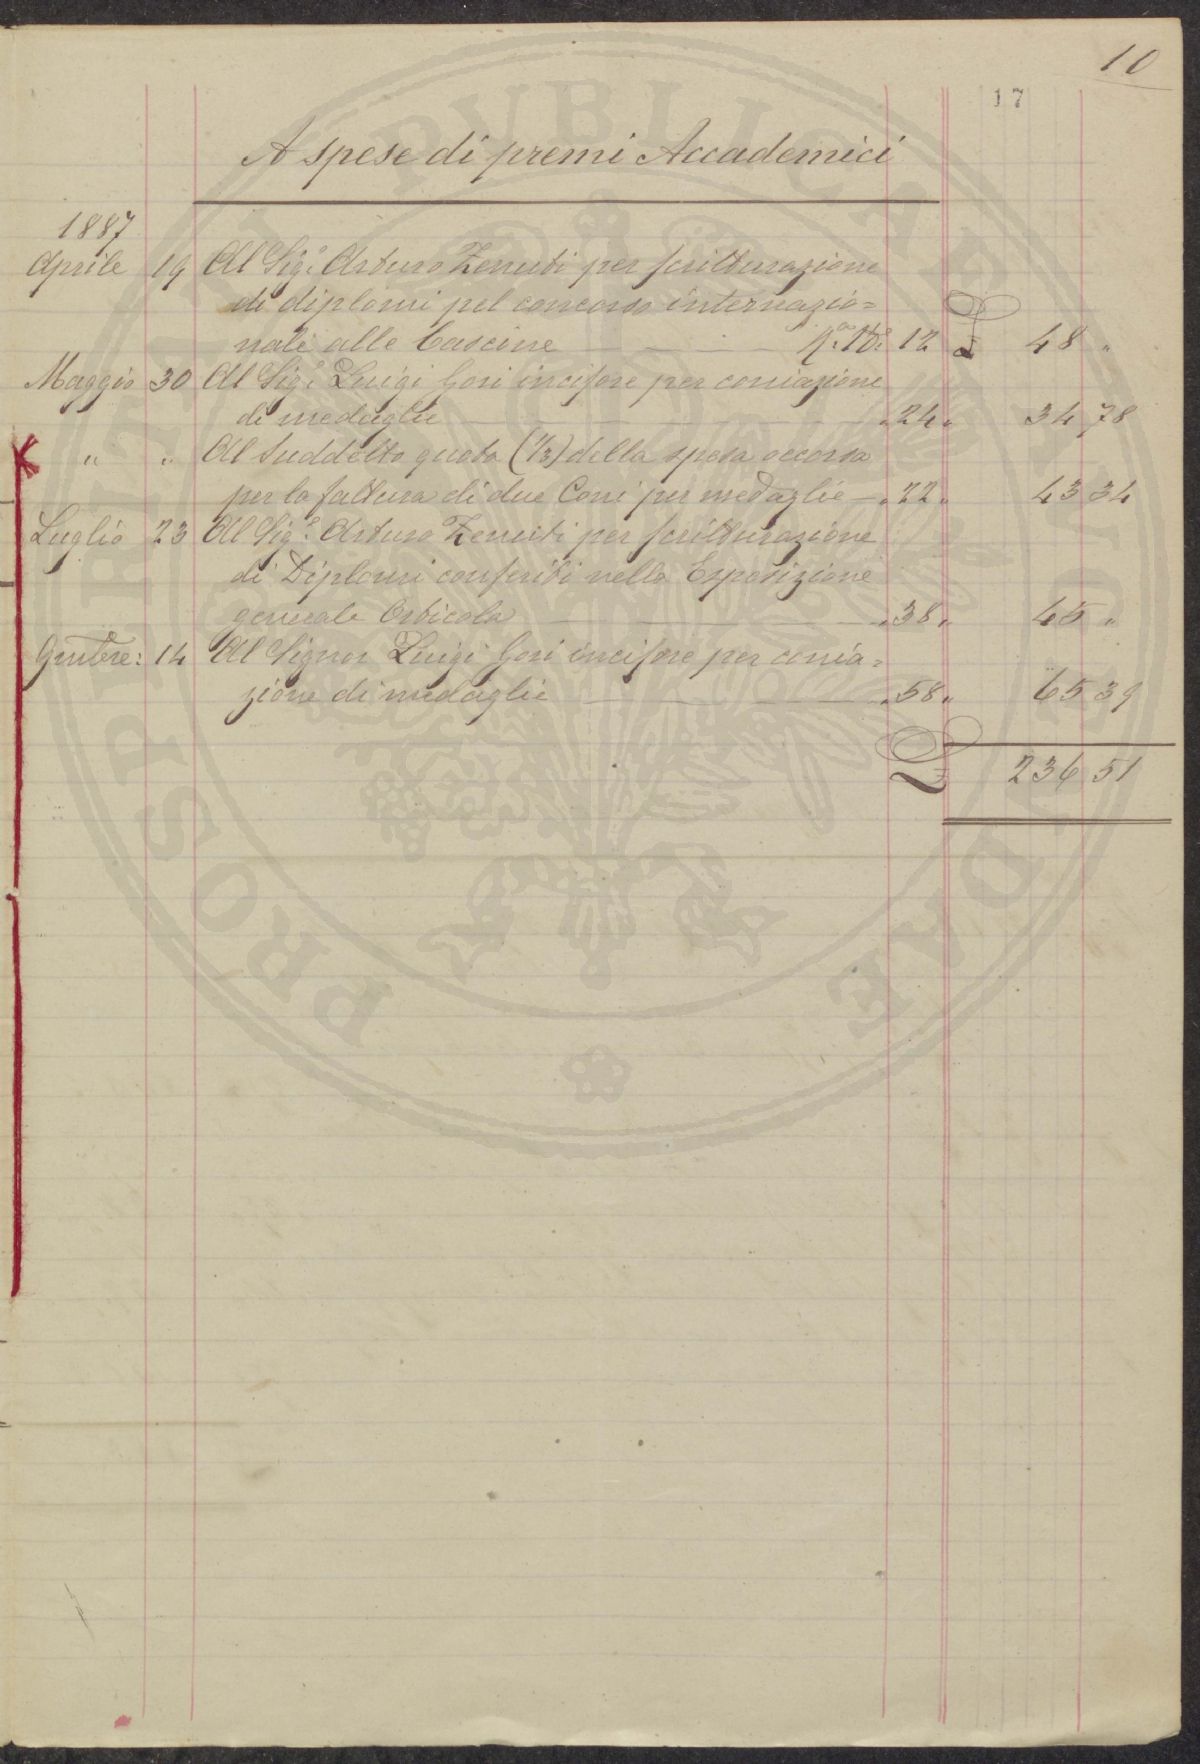 10
17
A spese di premi Accademici
1887
Aprile 19 Al Sig.r Arturo Zenuti per scritturazione
di diplomi pel concorso internazio=
nale alle Cascine 12 L 48 "
Maggio 30 Al Sig.r Luigi Gori incisore per coniazione
di medaglie " 24 " 34 78
" " Al Suddetto quota (1/3) della spesa occorsa
per la fattura di due Coni per medaglie " 22 " 43 34
Luglio 23 Al Sig.r Arturo Zenuti per scritturazione
di Diplomi conferiti nella Esposizione
generale Orticola " 38 " 45 "
14 Al Signor Luigi Gori incisore per conia=
zione di medaglie " 58 " 65 39
L 236 51
PROSPERITATI PUBLICAE AUGENDAE